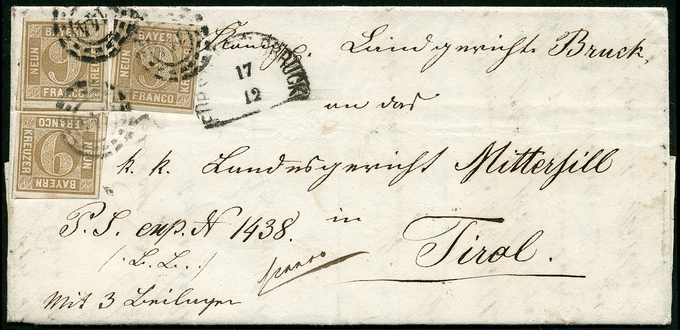 BAYERN BAYERN
NEUN 9 KREUZER NEUN 9
FRANCO FRANCO
BRUCK
17
12
FRANCO
KREUZER 9 NEUN
BAYERN
Landgericht Bruck,
an das
k. k. Landesgericht Mittersill
P. S. exp. N 1438. in
Tirol.
Mit 3 Beilagen